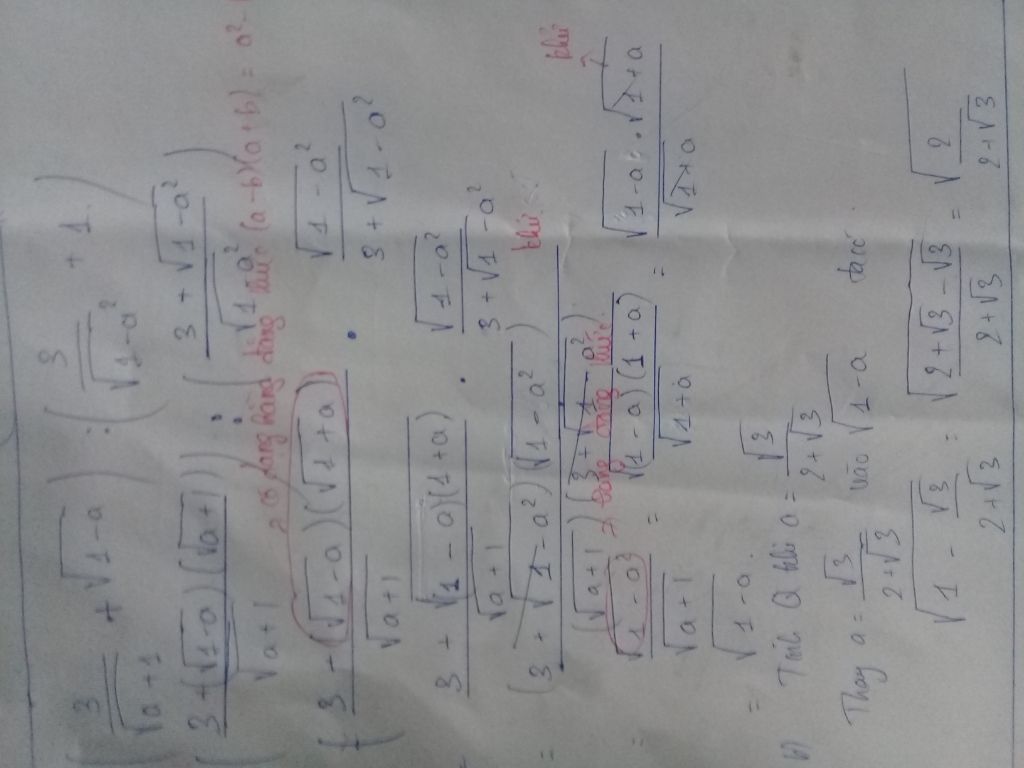 ( 3/√(a+1) + √(1-a) ) : ( 3/√(1-a²) + 1 )
( (3+(√(1-a))(√(a+1)))/√(a+1) ) : ( (3+√(1-a²))/√(1-a²) )
hằng đẳng thức (a-b)(a+b) = a²-
( (3+(√(1-a))(√(1+a)))/√(a+1) · √(1-a²)/(3+√(1-a²))
= (3+√((1-a)(1+a)))/√(a+1) · √(1-a²)/(3+√(1-a²))
= ((3+√(1-a²))(√(1-a²))/((√(a+1))(3+√(1-a²)) khử
hằng đẳng thức
= √(1-a²)/√(a+1) = √((1-a)(1+a))/√(1+a) = √(1-a)·√(1+a)/√(1+a) khử
= √(1-a)
b) Tính Q khi a = √3/(2+√3)
Thay a = √3/(2+√3) vào √(1-a) ta có
√(1 - √3/(2+√3)) = √((2+√3-√3)/(2+√3)) = √(2/(2+√3))